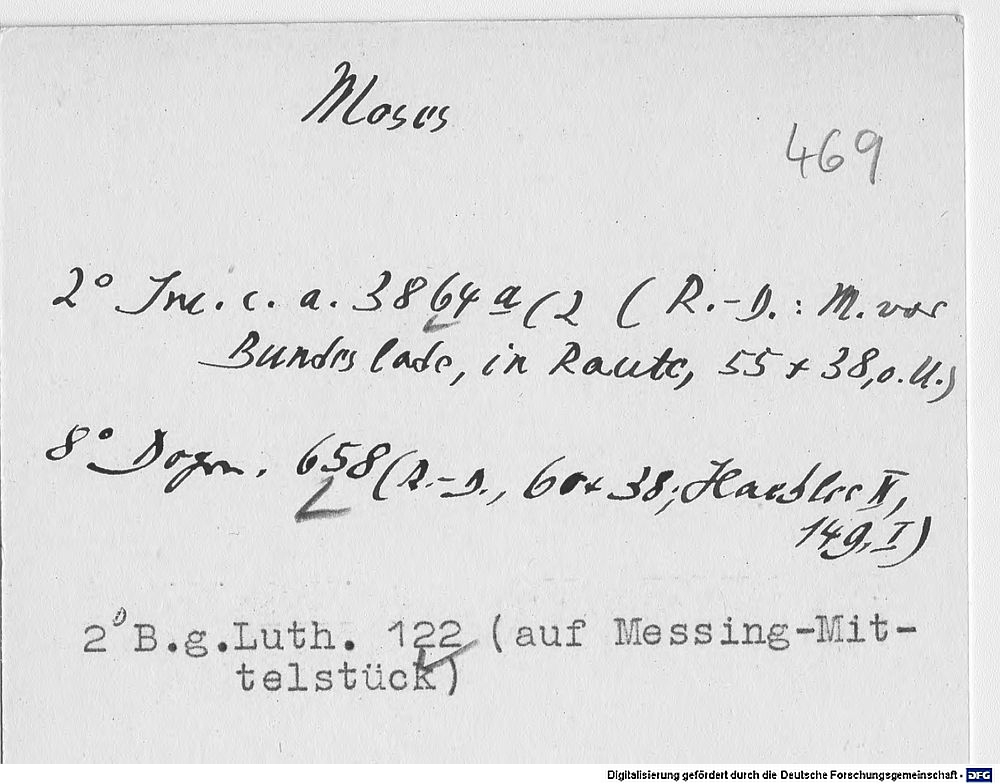 Moses
469
2° Inc. c. a. 3864 a (2 ( R.-D.: M. vor
Bundeslade, in Raute, 55 x 38, o. U.)
8° Dogm. 658 (R.-D., 60 x 38; Haebler II,
149, I)
2° B.g.Luth. 122 (auf Messing-Mit-
telstück)
Digitalisierung gefördert durch die Deutsche Forschungsgemeinschaft - DFG